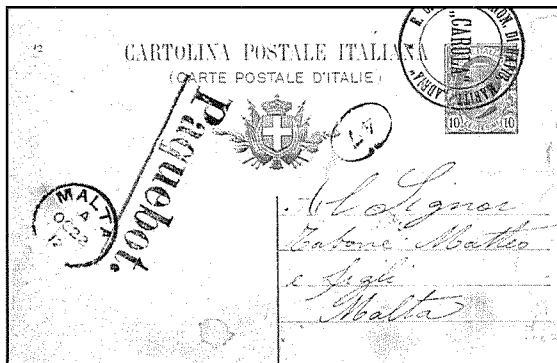 12
CARTOLINA POSTALE ITALIANA
(CARTE POSTALE D'ITALIE)
"CAROLA"
DI NAVIG. MARITT. "ADRIA"
10 10
Paquebot.
47
MALTA
A
OC 22
12
Al Signor
Tabone Matteo
e figli
Malta